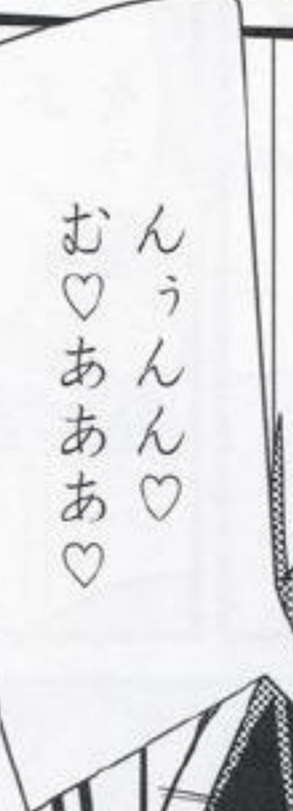 んぅんん♡
む♡あああ♡